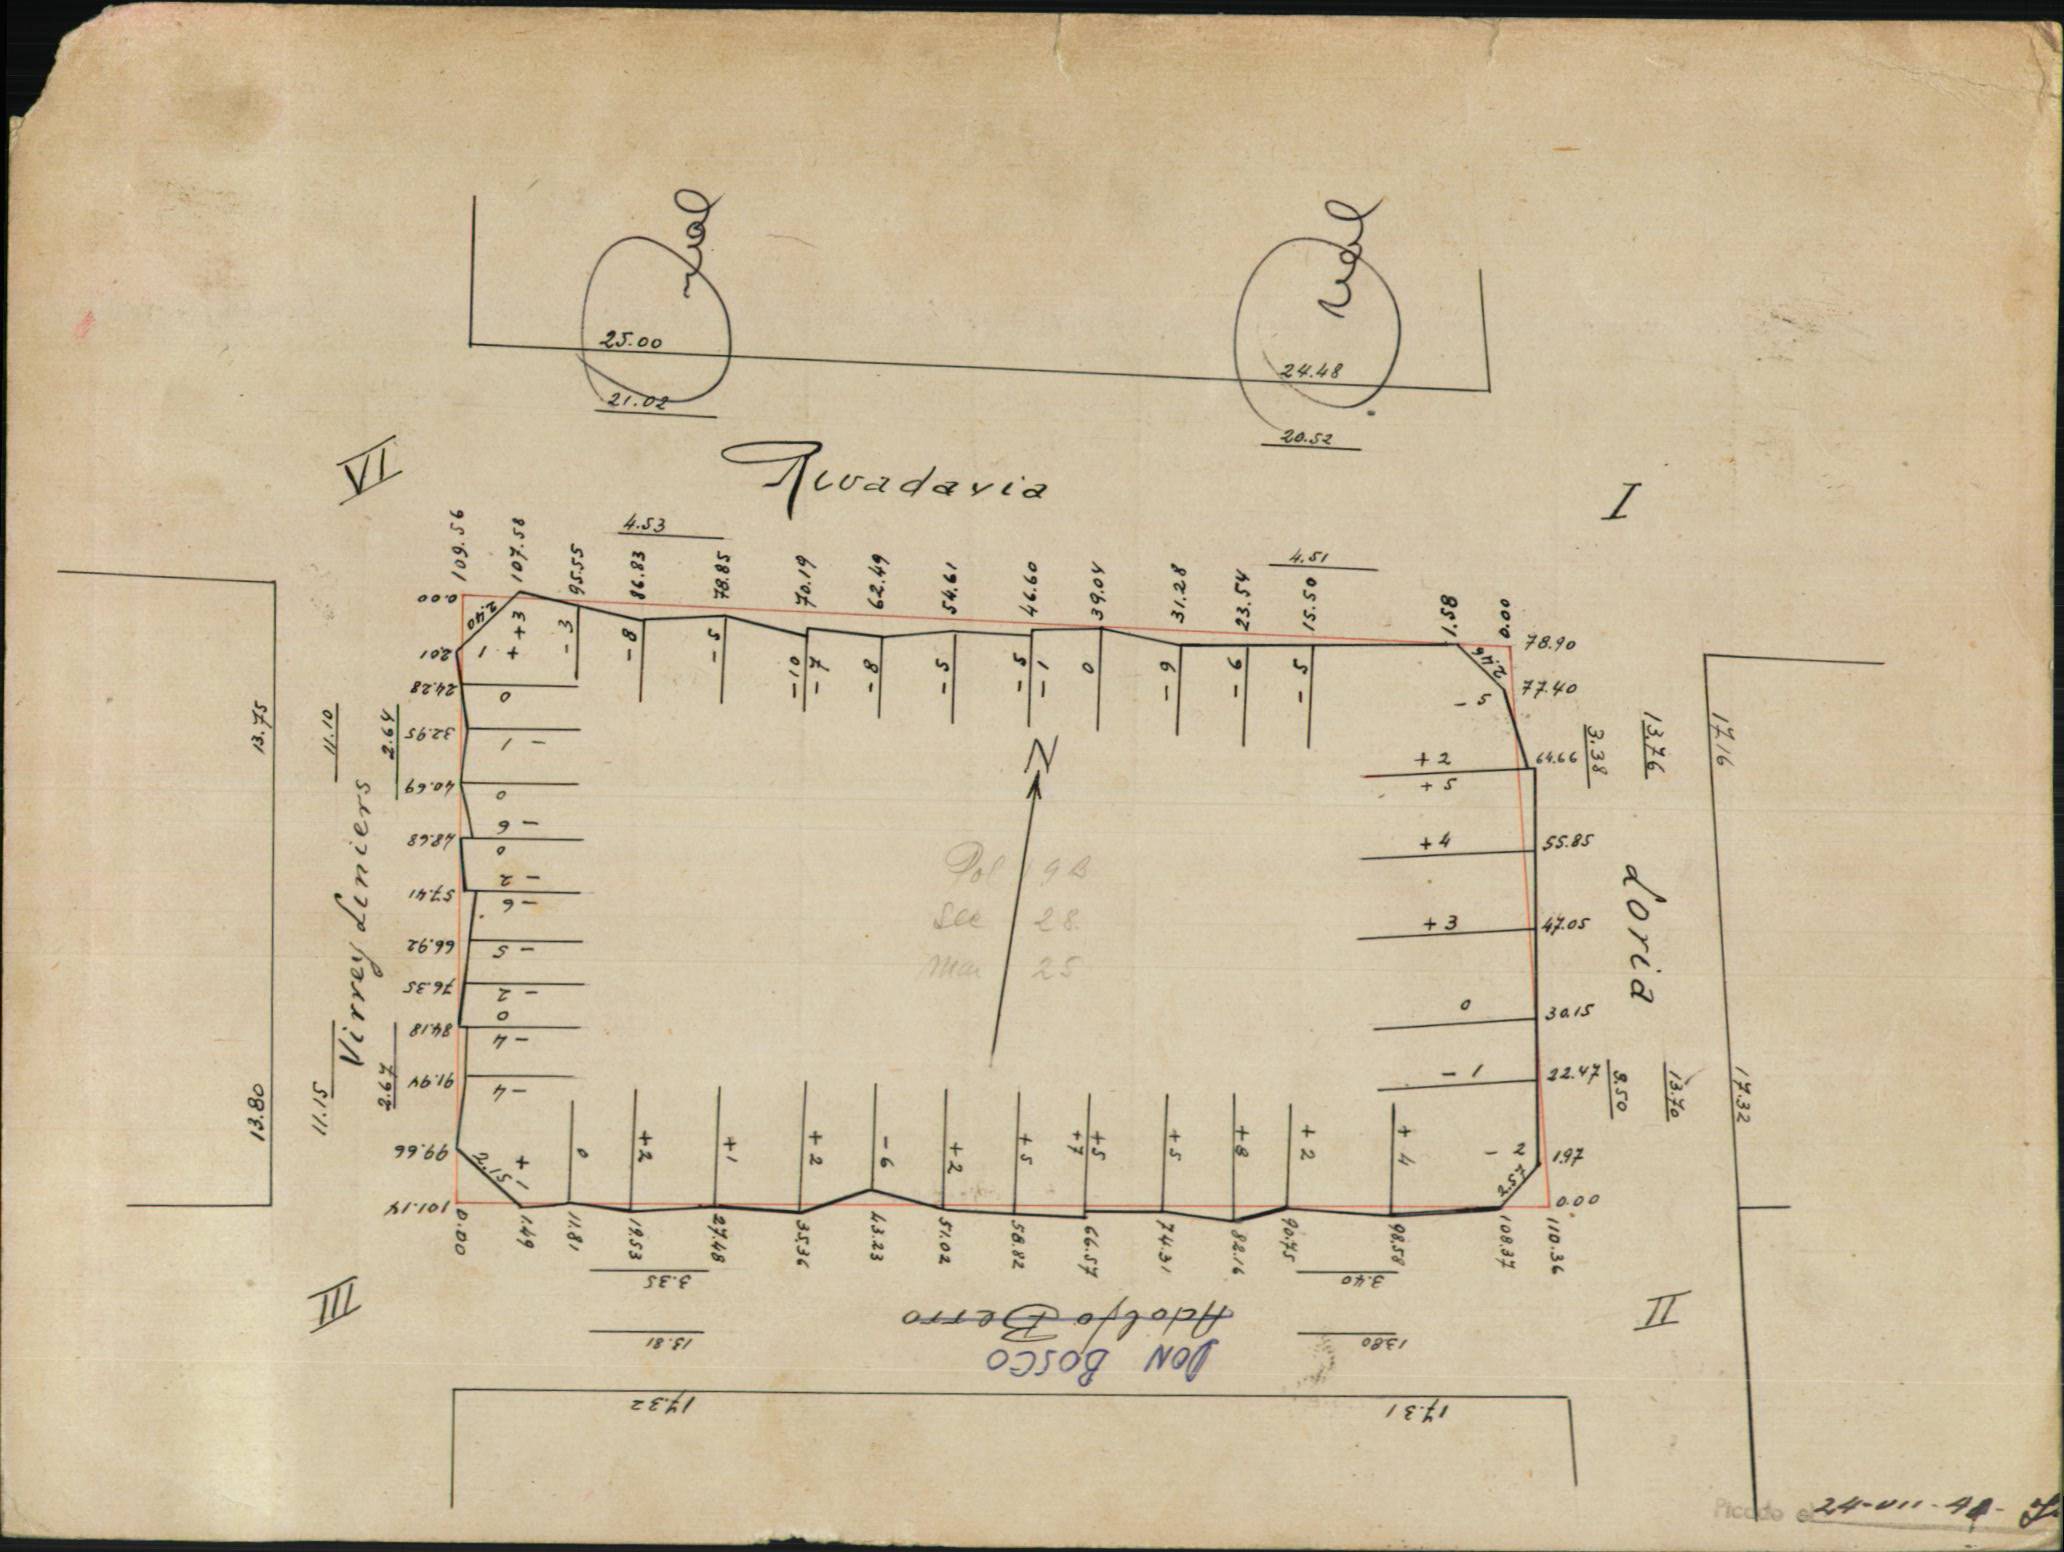 real
real
25.00
24.48
21.02
20.52
VI
Rivadavia
I
4.53
4.51
109.56
107.58
95.55
86.83
78.85
70.19
62.49
54.61
46.60
39.04
31.28
23.54
15.50
1.58
0.00
0.00
2.40
+3
+1
-3
-8
-5
-10
-7
-8
-5
-5
-1
0
-6
-6
-5
2.46
-5
78.90
77.40
2.01
24.28
0
32.95
-1
40.69
0
-6
48.68
0
-2
57.41
-6
66.92
-5
76.35
-2
0
84.18
-4
91.94
-4
99.66
101.14
13.75
11.10
2.64
Virrey Liniers
13.80
11.15
2.67
N
Pol 9B
Sec 28.
Man 25
+2
+5
64.66
+4
55.85
+3
47.05
0
30.15
-1
22.47
-2
1.97
2.57
0.00
3.38
13.76
17.16
Loria
3.50
13.70
17.32
2.51
+1
0
+2
+1
+2
-6
+2
+5
+7
+5
+5
+8
+2
+4
0.00
1.49
11.81
19.53
27.48
35.36
43.23
51.02
58.82
66.57
74.31
82.16
90.75
98.58
108.37
110.36
3.35
3.40
III
Adolfo Berro
II
13.81
13.80
DON BOSCO
17.32
17.31
Picado el 24-VII-41-